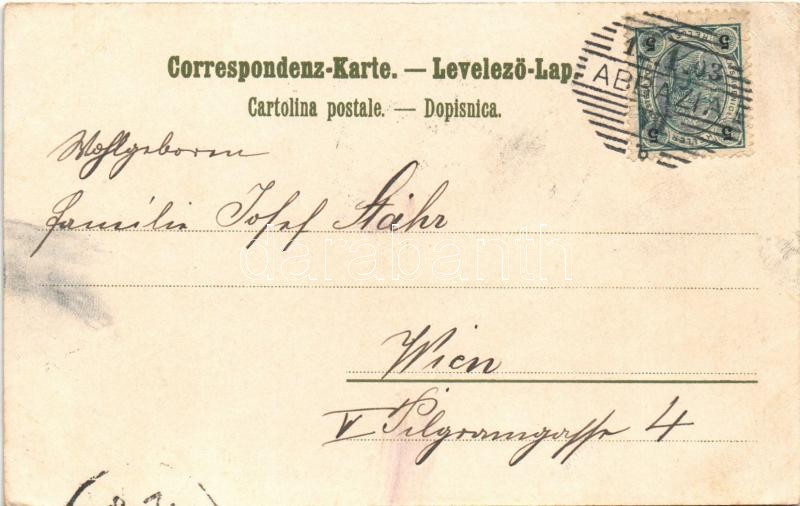 Correspondenz-Karte. — Levelező-Lap.
Cartolina postale. — Dopisnica.
ABBAZIA
5 5
5 5
Wohlgeboren
Familie Josef Stöhr
darabanth
Wien
V Pilgramgasse 4